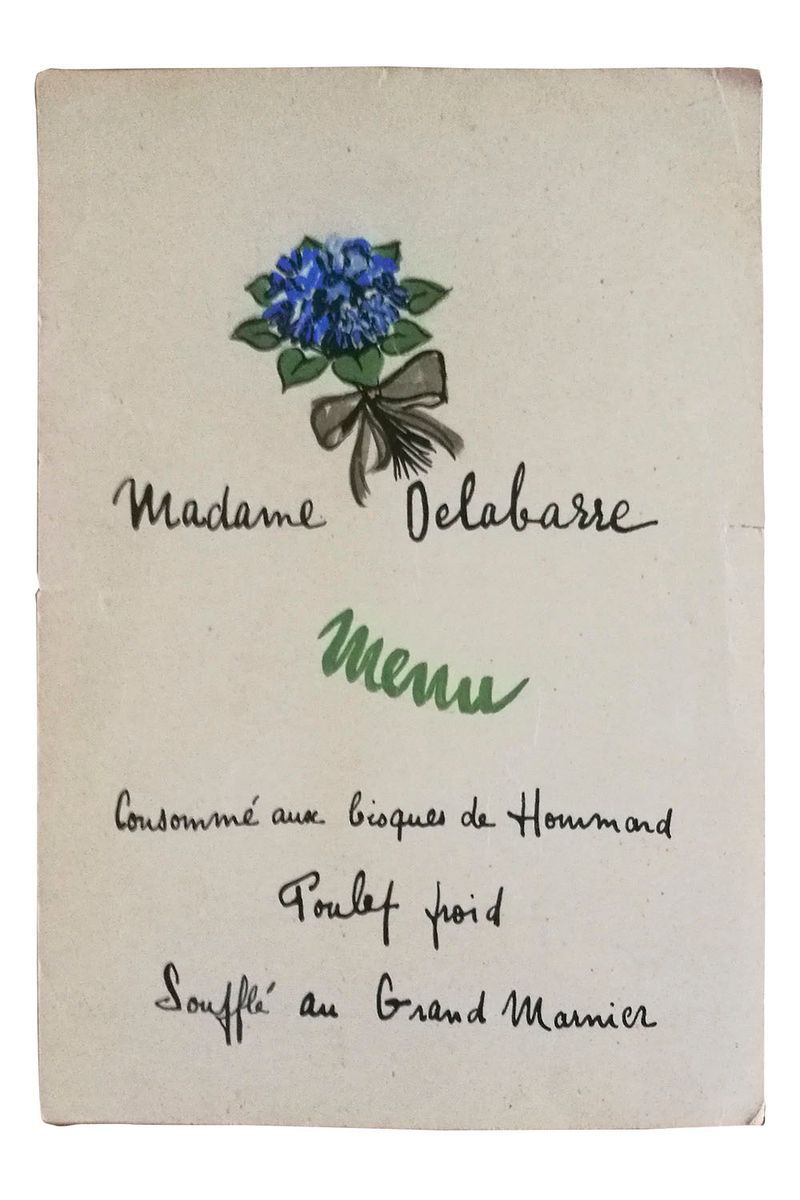 Madame Delabarre
Menu
Consommé aux bisques de Hommard
Poulet froid
Soufflé au Grand Marnier